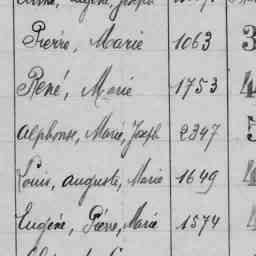 Pierre, Marie 1063 3
René, Marie 1753 4
Alphonse, Marie, Joseph 2347 5
Louis, Auguste, Marie 1649 4
Eugène, Pierre, Marie 1574 4